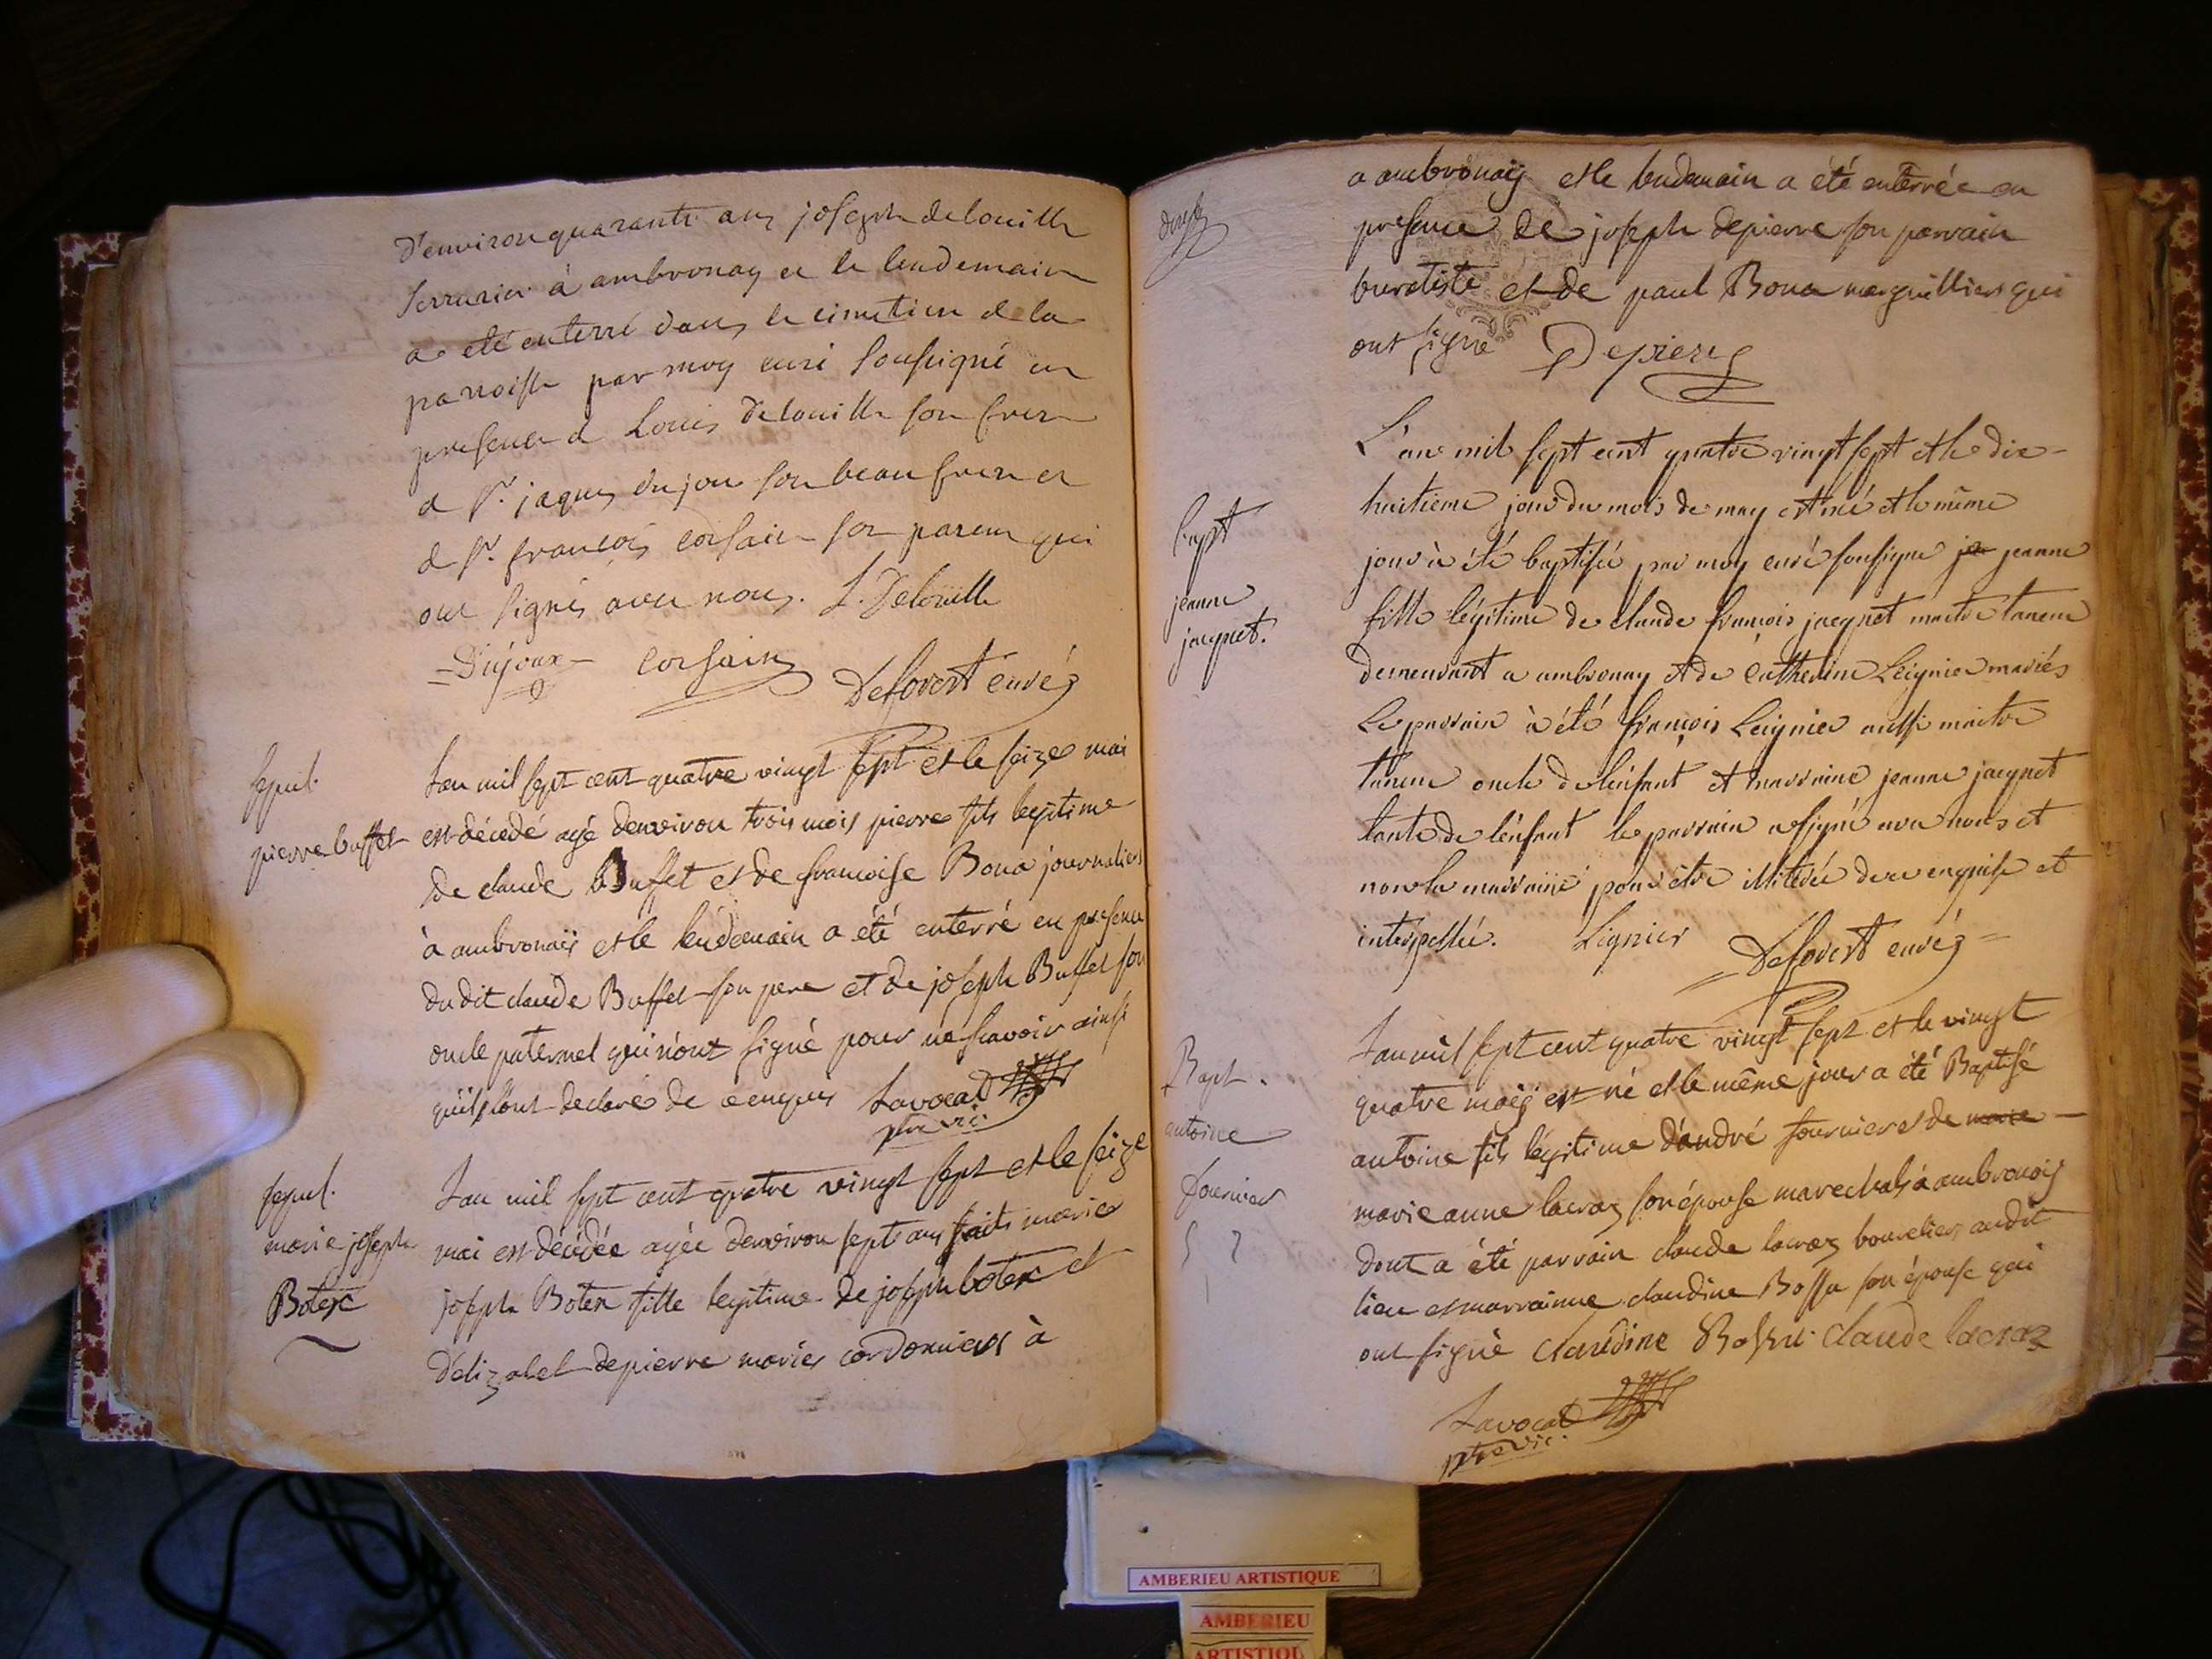 d'environ quarante ans joseph delouille
serrurier à ambronay et le lendemain
a été enterré dans le cimetiere de la
paroisse par moy curé soussigné en
presence de Louis delouille son frere
de sr. jaques dujou son beau frere et
de sr. françois corsain son parent qui
ont signés avec nous. L. Delouille
Dujoux corsain Deforest curé
sepul.
pierre buffet
L'an mil sept cent quatre vingt sept et le seize mai
est décédé agé denviron trois mois pierre fils legitime
de claude Buffet et de francoise Bona journaliers
à ambronaÿ et le lendemain a été enterré en presence
du dit claude Buffet son pere et de joseph Buffet son
oncle paternel qui n'ont signé pour ne scavoir ainsi
qu'ils l'ont declaré de ce enquis Lavocat
ptre vic.
sepul.
marie joseph
Botex
L'an mil sept cent quatre vingt sept et le seize
mai est décédée agée denviron sept ans faits marie
joseph Botex fille legitime de joseph botex et
d'elizabet depierre mariés cordonniers à
a ambronaÿ et le lendemain a été enterrée en
presence de joseph depierre son parrain
buratiste et de paul Bona marguillier qui
ont signé Depiere
bapt
jeanne
jacquet.
L'an mil sept cent quatre vingt sept et le dix-
huitieme jour du mois de may est né et le même
jour à été baptisée par moy curé soussigné je jeanne
fille légitime de claude françois jacquet maitre taneur
demeurant a ambronay et de Catherine Leignier mariés
Le parrain à été françois Leignier aussi maitre
taneur oncle de l'enfant et marraine jeanne jacquet
tante de l'enfant le parrain a signé avec nous et
non la marraine pour etre illiterée de ce enquise et
interpellée. Lignier Deforest curé
Bapt.
antoine
fournier
L'an mil sept cent quatre vingt sept et le vingt
quatre maÿ est né et le même jour a été Baptisé
antoine fils légitime d'andré fournier et de marie
marie anne lacroz son épouse marechal à ambronay
dont a été parrain claude lacroz bourelier audit
lieu et marrainne claudine Bossu son épouse qui
ont signé claudine Bossu claude lacroz
Lavocat
ptre vic.
AMBERIEU ARTISTIQUE
AMBERIEU